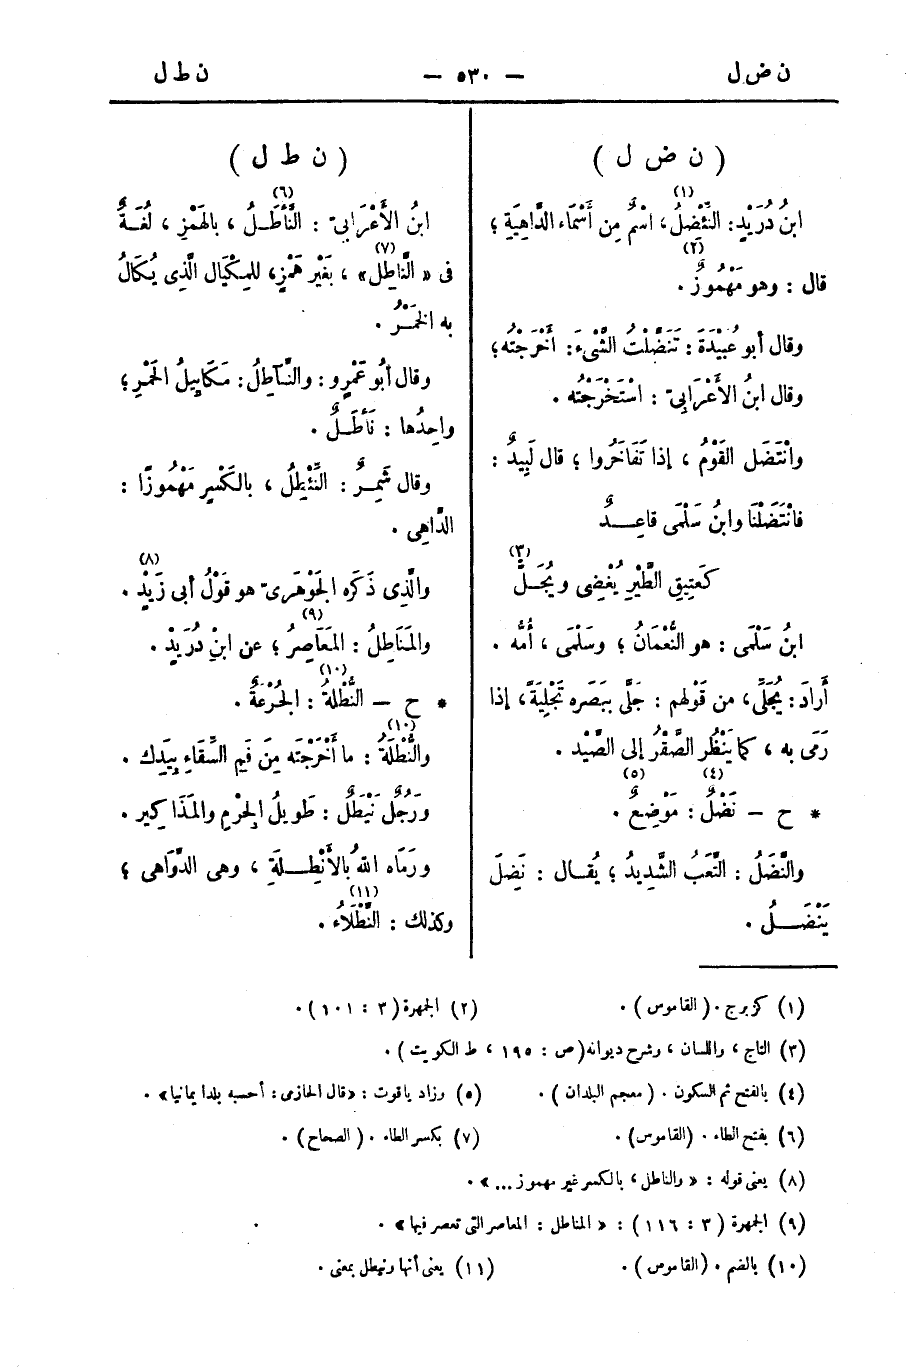 ن ض ل — ٥٣٠ — ن ط ل
( ن ض ل )
(١)
ابنُ دُرَيْدٍ : النِّئْضِلُ ، اسْمٌ مِن أَسْمَاءِ الدَّاهِيَةِ ؛
(٢)
قال : وهو مَهْمُوزٌ .
وقال أبو عُبَيْدَةَ : تَنَضَّلْتُ الشَّىْءَ : أَخْرَجْتُه ؛
وقال ابنُ الأَعْرَابِىّ : اسْتَخْرَجْتُه .
وانْتَضَل القَوْمُ ، إذا تَفَاخَرُوا ؛ قال لَبِيدٌ :
فانْتَضَلْنَا وابنُ سَلْمَى قاعِــدٌ
(٣)
كَعَتِيقِ الطَّيْرِ يُغْضِى ويُجَـلّْ
ابنُ سَلْمَى : هو النُّعْمَانُ ؛ وسَلْمَى ، أُمُّه .
أَرادَ : يُجَلِّى ، من قَوْلهم : جَلَّى ببَصَره تَجْلِيَةً ، إذا
رَمَى به ، كما يَنْظُر الصَّقْرُ إلى الصَّيْد .
(٤) (٥)
* ح — نَضْلٌ : مَوْضِعٌ .
والنَّضَلُ : التَّعَبُ الشَّدِيدُ ؛ يُقـال : نَضِلَ
يَنْضَــلُ .
( ن ط ل )
(٦)
ابنُ الأَعْرَابىّ : النَّأْطَـلُ ، بالهَمْزِ ، لُغَـةٌ
(٧)
فى « النَّاطِل » ، بغَيْر هَمْزٍ ، للمِكْيَال الَّذِى يُكَالُ
به الخَمْـرُ .
وقال أبُو عَمْرٍو : والنَّـآطِلُ : مَكَايِيلُ الخَمْرِ ؛
واحِدُها : نَأْطَـلٌ .
وقال شَمِـرٌ : النِّئْطِلُ ، بالكَسْرِ مَهْمُوزًا :
الدَّاهِى .
(٨)
والَّذِى ذَكَره الجَوْهَرِىّ هو قَوْلُ أبى زَيْدٍ .
(٩)
والمَنَاطِلُ : المَعَاصِرُ ؛ عن ابنِ دُرَيْدٍ .
(١٠)
* ح — النُّطْلَةُ : الجُرْعَةُ .
(١٠)
والنُّطْلَةُ : ما أَخْرَجْتَه مِنَ فَمِ السِّقَاءِ بِيَدِك .
ورَجُلٌ نَيْطَلٌ : طَوِيلُ الجِرْمِ والمَذَاكِير .
ورَمَاه اللهُ بالأَنْطِـلَةِ ، وهى الدَّوَاهى ؛
(١١)
وكذلك : النَّطْلَاءُ .
(١) كزبرج . ( القاموس ) . (٢) الجمهرة ( ٣ : ١٠١ ) .
(٣) التاج ، واللسان ، وشرح ديوانه ( ص : ١٩٥ ، ط الكويت ) .
(٤) بالفتح ثم السكون . ( معجم البلدان ) . (٥) وزاد ياقوت : « قال الحازمى : أحسبه بلدا يمانيا » .
(٦) بفتح الطاء . ( القاموس ) . (٧) بكسر الطاء . ( الصحاح ) .
(٨) يعنى قوله : « والناطل ، بالكسر غير مهموز ... » .
(٩) الجمهرة ( ٣ : ١١٦ ) : « المناطل : المعاصر التى تعصر فيها » .
(١٠) بالضم . ( القاموس ) . (١١) يعنى أنها ونيطل بمعنى .